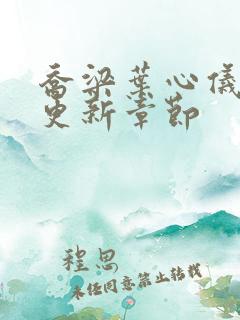 乔梁葉心儀
更新章節
程思
未经同意禁止转载